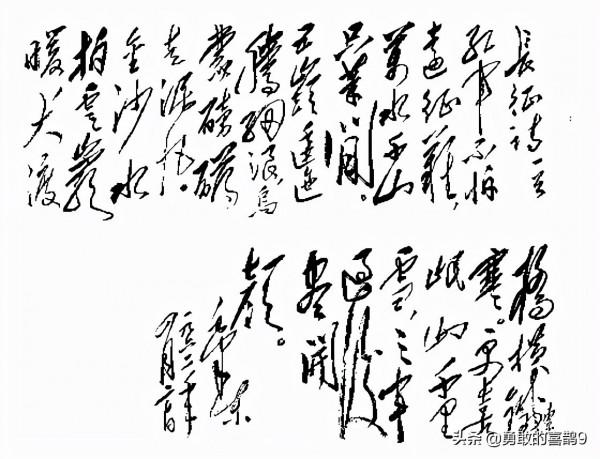 長征詩一首
紅軍不怕
遠征難，
萬水千山
只等閒。
五嶺逶迤
騰細浪烏
蒙磅礴
走泥丸。
金沙水
拍雲巖
暖大渡
橋橫鐵索
寒。更喜
岷山千里
雪，三軍
過後
盡開
顏。
毛澤東
一九六二年
四月二十日
头条 @勇敢的喜鹊9